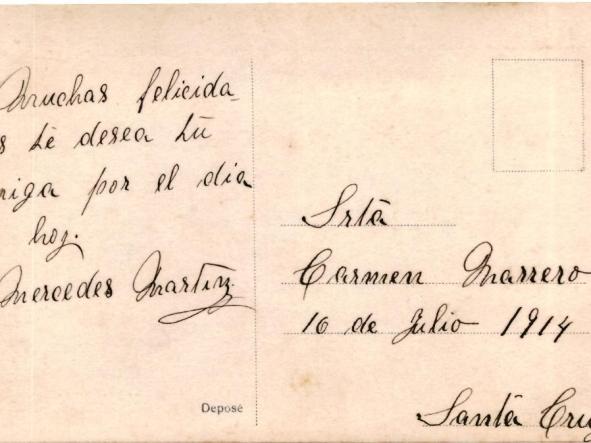 Muchas felicida-
s te desea tu
riga por el dia
hoy.
Mercedes Martinz
Deposé
Srta
Carmen Marrero
16 de Julio 1914
Santa Cruz